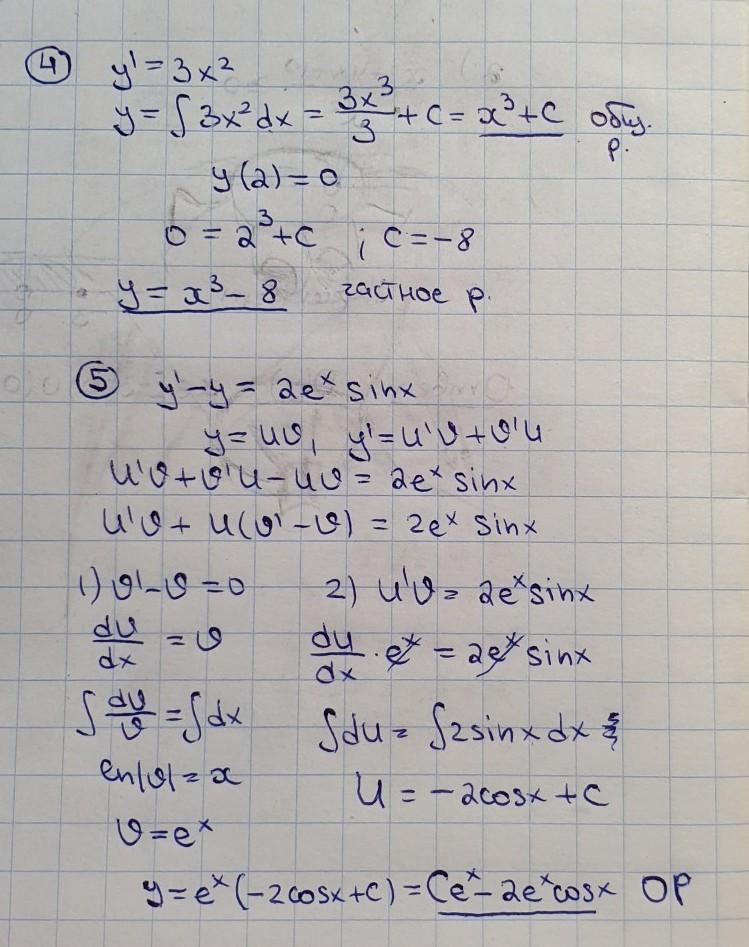 ④ y' = 3x²
y = ∫ 3x² dx = 3x³/3 + C = x³ + C общ.
р.
y(2) = 0
0 = 2³ + C ; C = -8
y = x³ - 8 частное р.
⑤ y' - y = 2eˣ sinx
y = uv, y' = u'v + v'u
u'v + v'u - uv = 2eˣ sinx
u'v + u(v' - v) = 2eˣ sinx
1) v' - v = 0
dv/dx = v
∫ dv/v = ∫ dx
ln|v| = x
v = eˣ
2) u'v = 2eˣ sinx
du/dx · eˣ = 2eˣ sinx
∫ du = ∫ 2 sinx dx
u = -2cosx + C
y = eˣ(-2cosx + C) = Ceˣ - 2eˣcosx ОР